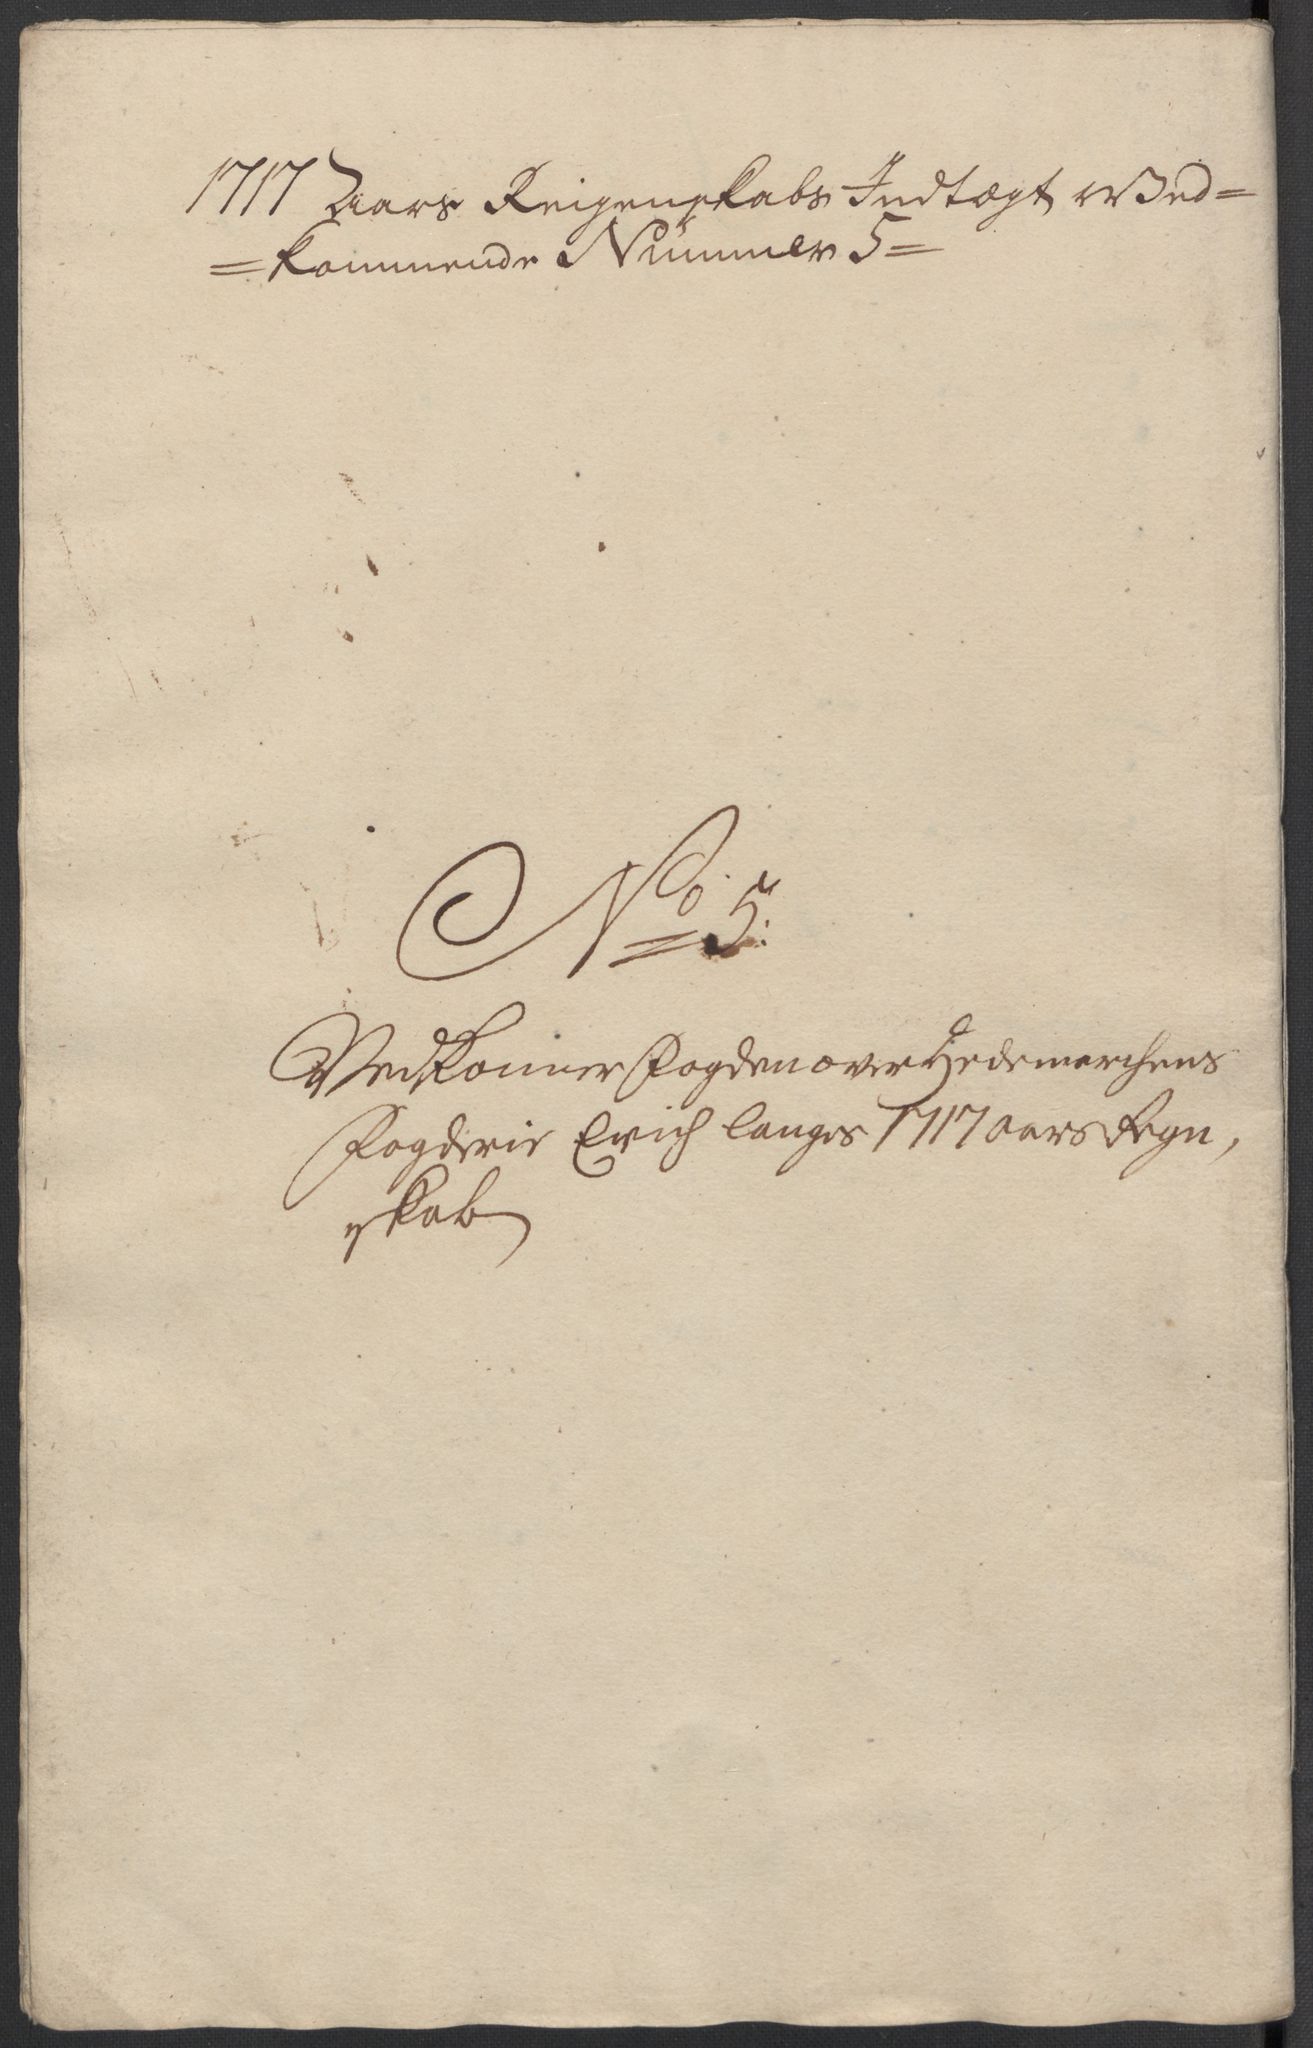 1717 Aars Reigenskabs Indtægt Ved=
=kommende Nümmer 5=
No 5:
Vedkommer Fogden over Hedemarchens
Fogderie Erich Langes 1717 aars Regn,
skab